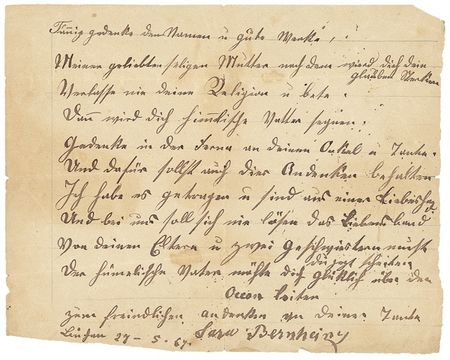 Innig gedenke den Namen u gute Werke,
Meiner geliebten seligen Mutter nach dem wird dich dein
glauben Stärken
Verlasse nie deine Religion u bete.
Dan wird dich himmlische Vatter segnen.
Gedenke in der Ferne an deinen Onkel u Tante.
Und dafür sollst auch dies Andenken behalten
Ich habe es getragen u sind aus einer
Und bei uns soll sich nie lösen das Liebensband
Von deinen Eltern u zwei Geschwistern nicht
Der himelische Vater möchte dich Glüklich über den
Ocean leiten
zum freindlichen andenken von deiner Tante
27 - 5. 67. Sara Bernheim